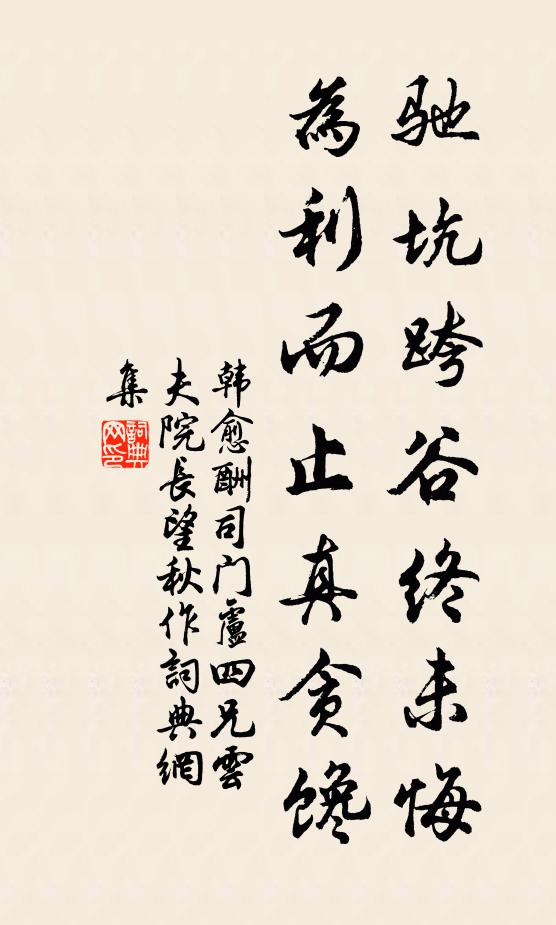 驰坑跨谷终未悔
為利而止真贪馋
韩愈酬司门盧四兄雲
夫院長望秋作詞典網
集
詞典網印